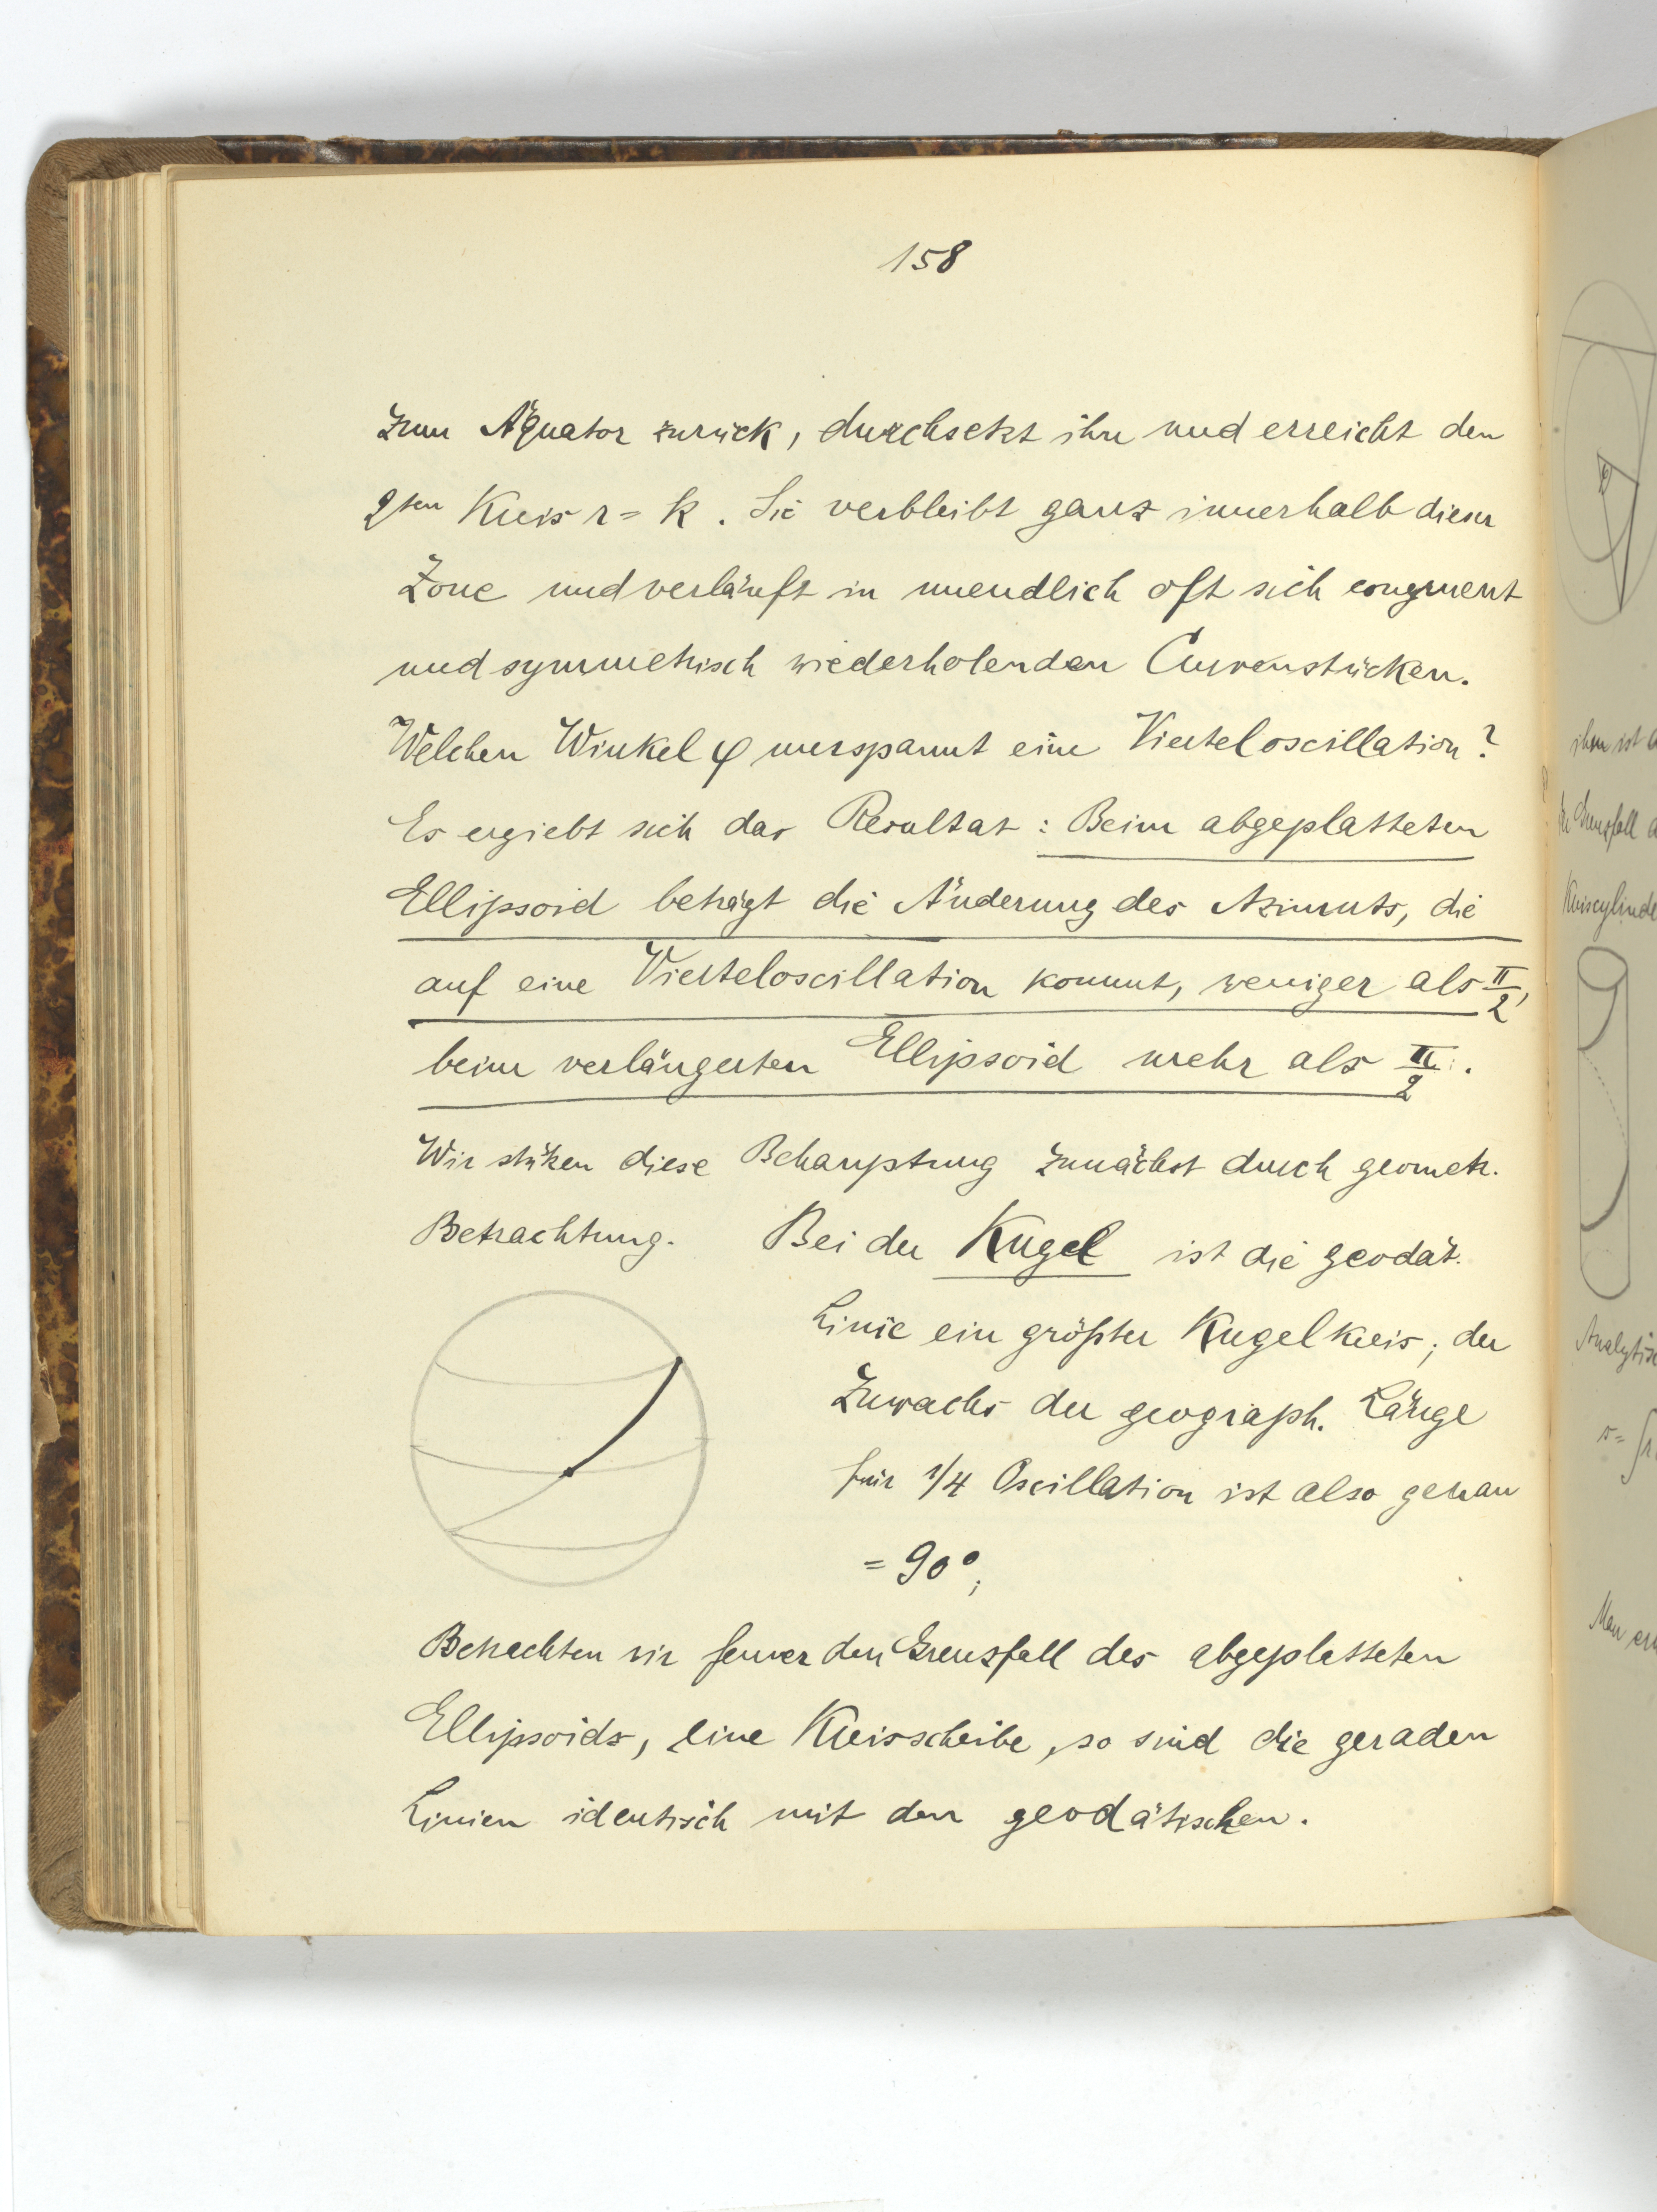 158
zum Äquator zurück, durchsetzt ihn und erreicht den
2ten Kreis r = k. Sie verbleibt ganz innerhalb dieser
Zone und verläuft in unendlich oft sich congruent
und symmetrisch wiederholenden Curvenstücken.
Welchen Winkel φ umspannt eine Vierteloscillation?
Es ergiebt sich das Resultat: Beim abgeplatteten
Ellipsoid beträgt die Änderung des Azimuts, die
auf eine Vierteloscillation kommt, weniger als π/2,
beim verlängerten Ellipsoid mehr als π/2.
Wir stützen diese Behauptung zunächst durch geometr.
Betrachtung. Bei der Kugel ist die geodät.
Linie ein größter Kugelkreis; der
Zuwachs der geograph. Länge
für 1/4 Oscillation ist also genau
= 90°;
Betrachten wir ferner den Grenzfall des abgeplatteten
Ellipsoids, eine Kreisscheibe, so sind die geraden
Linien identisch mit den geodätischen.
ihm ist
Grenzfall
Kreiscylinde
Analytisc
Man